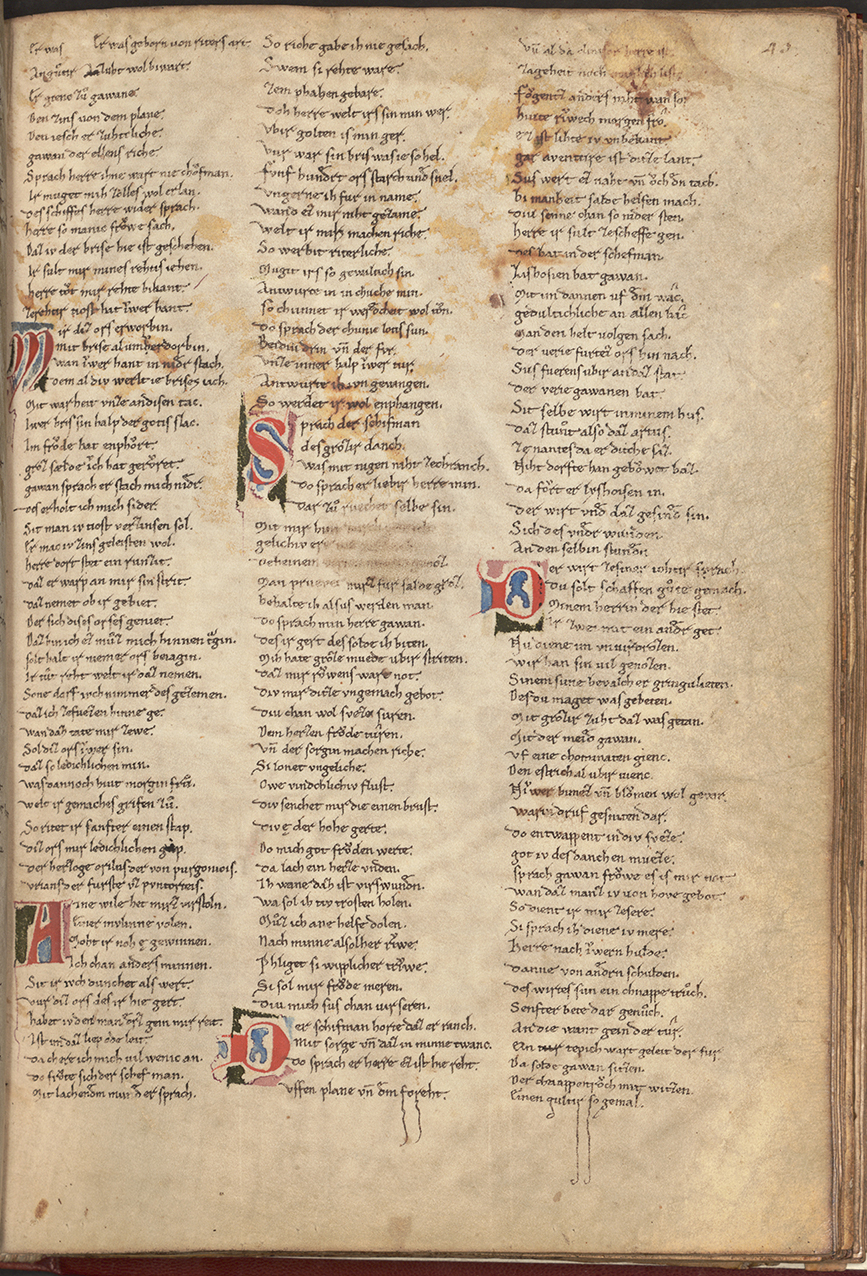 Er was Er was geborn von riters art
So riche gabe ih nie gelich.
Swem si rehte ware.
Er giene zů gawane
Den zins von dem plane.
Den iesch er zuhtliche.
gawan der ellens riche
Sprach herre ihne wart nie chǒfman.
Ir muget mih zolles wol erlan.
des schiffes herre wider sprach.
herre so manic frǒwe sach.
Daz iv der brise hie ist geschehen.
Ir sult mir mines rehtis iehen.
herre tůt mir rehte bikant.
Mir daz ors erworbin.
mit brise al
wan iwer hant in nider stach.
Dem al div werlt ie brises iach.
Mit warheit unze an disen tac.
Iwer bris sin halp der gotis slac.
Im frǒde hat enphǒrt.
groz sælde ich hat gerǒret.
gawan sprach er stach mich nidr.
des erholt ich mich sider.
Sit man iv tiost verzinsen sol.
Er mac iv zins geleisten wol.
herre dort stet ein runzit.
daz er warp an mir sin strit.
daz nemet ob ir gebiet.
Der sich dises orses geniet.
Daz bin ich ez můz mich hinnen tragin.
solt halt ir niemer ors beiagin.
Ir iehet reht welt ir daz nemen.
Sone darf iwch nimmer des gezemen.
daz ich ze fuezen hinne ge.
wan daz tæte mir ze we.
Solt diz ors iwer sin.
daz so ledichlichen min.
was dannoch hiut morgin frů.
welt ir gemaches grifen zů.
So ritet ir sanfter einen stap.
diz ors mir ledichlichen gap.
der herzoge orilus der von purgonois.
vrians der furste vz
Aine wile het mirz virstoln.
Einer mvlinne volen.
Mohtir noh e gewinnen.
Ich chan anders minnen.
Sit ir iwch dunchet als wert.
vur diz ors des ir hie gert.
habet iv den man derz gein mir reit.
Ist im daz liep ode leit.
da chere ich mich vil wenic an.
do frǒte sich der schefman.
Mit lachendem munde er sprach.
So riche gabe ih nie gesach.
Swem si rehte ware.
zem phahen gebare.
doh herre welt irs sin min wer.
vbir golten is min ger.
vur war sin bris was ie so hel.
fvnf hundert ors starch und snel.
vngerne ih fur in name.
wand ez mir niht gezame.
welt ir mih machen riche.
So werbit riterliche.
Mugit irs so gewaltich sin.
Antwurte in in chuche min.
so chunnet ir werdecheit wol tůn.
do sprach der chunic lotis sun.
Beidiu drin vñ der fvr.
vnze inner halp iwer tur.
Antwurte ih ivn gevangen.
So werdet ir wol enphangen.
Sprach der schifman
des grozir danch.
was mit nigen niht ze chranch.
do sprach er liebir herre min.
dar zů rvechet selbe sin.
Mit mir
Man pruevet mirz fur sælde groz.
behalte ih alsus werden man.
do sprach min herre gawan.
des ir gert des solde ih biten.
Mih hate groze muede vbir striten.
daz mir rǒwens ware not.
div mir dirre vngemach gebot.
div chan wol svezze suren.
Dem herzen frǒde tiuren.
vñ der sorgin machen riche.
Si lonet vngeliche.
Owe vindchlichiv flust.
div senchet mir die einen brust.
div e der hohe gerte.
Do mich got frǒden werte.
da lach ein herze vnden.
Ih wæne daz ist virswunden.
wa sol ih nv trosten holen.
Můz ich ane helfe dolen.
Nach minne alsolher rǐwe.
Phliget si wipplicher triwe.
Si sol mir frǒde meren.
diu mich sus chan virseren.
Der schifman horte daz er ranch.
Mit sorge vñ daz in minne twanc.
do sprach er herre ez ist hie reht.
uffen plane vñ dem foreht.
vñ al da dinsor herre ist.
zageheit noch
fǒgent ez anders niht wan so.
hiute rǐwech morgen fro.
Ez ist lihte iv vnbekant
gar aventiure ist dirre lant.
Sus wert ez naht vñ ǒch den tach.
bi manheit sælde helfen mach.
div sunne chan so nider sten.
herre ir sult ze scheffe gen.
des bat in der schefman.
Lishoien bat gawan.
Mit im dannen uf den wac.
gedultichliche an allen bac
Man den helt volgen sach.
der verie furte daz ors hin nach.
Sus fueren si vbir an daz stat
der verie gawanen bat
Sit selbe wirt in minem hus.
daz stunt also daz artus.
ze nantes da er diche saz.
Niht dorfte han gebǒwet baz.
da fǒrt er lyshoien in.
der wirt vnd daz gesinde sin.
Sich des vnder wunden.
An den selbin stunden
Der wirt ze siner tohtir sprach.
Du solt schaffen gůte gemach.
Minem herrin der hie stet
Ir zwei mit ein ander get
Nu diene im vnvirdrozen.
wir han sin vil genozen.
Sinem sune bevalch er gringulieten.
Des du maget was gebeten.
Mit grozir zuht daz was getan.
Mit der meide gawan.
vf eine chomnaten gienc.
Den estrich al vbir vienc.
Niwer bintz vñ blǒmen wol gevar.
warn druf gesniten dar.
do entwappent in div svezze.
got iv des danchen mueze.
sprach gawan frǒwe es is mir not
wan daz manz iv von hove gebot.
So dient ir mir ze sere.
Si sprach ih diene iv mere.
Herre nach iwern hulden.
danne von andern schulden.
des wirtes sun ein chnappe trůch.
Senfter bete dar genůch.
An die want gein der tur.
Ein tepich wart geleit der fur.
Da solde gawan sitzen.
Der chnappe trǒch mit witzen.
Einen gultir so gemal.